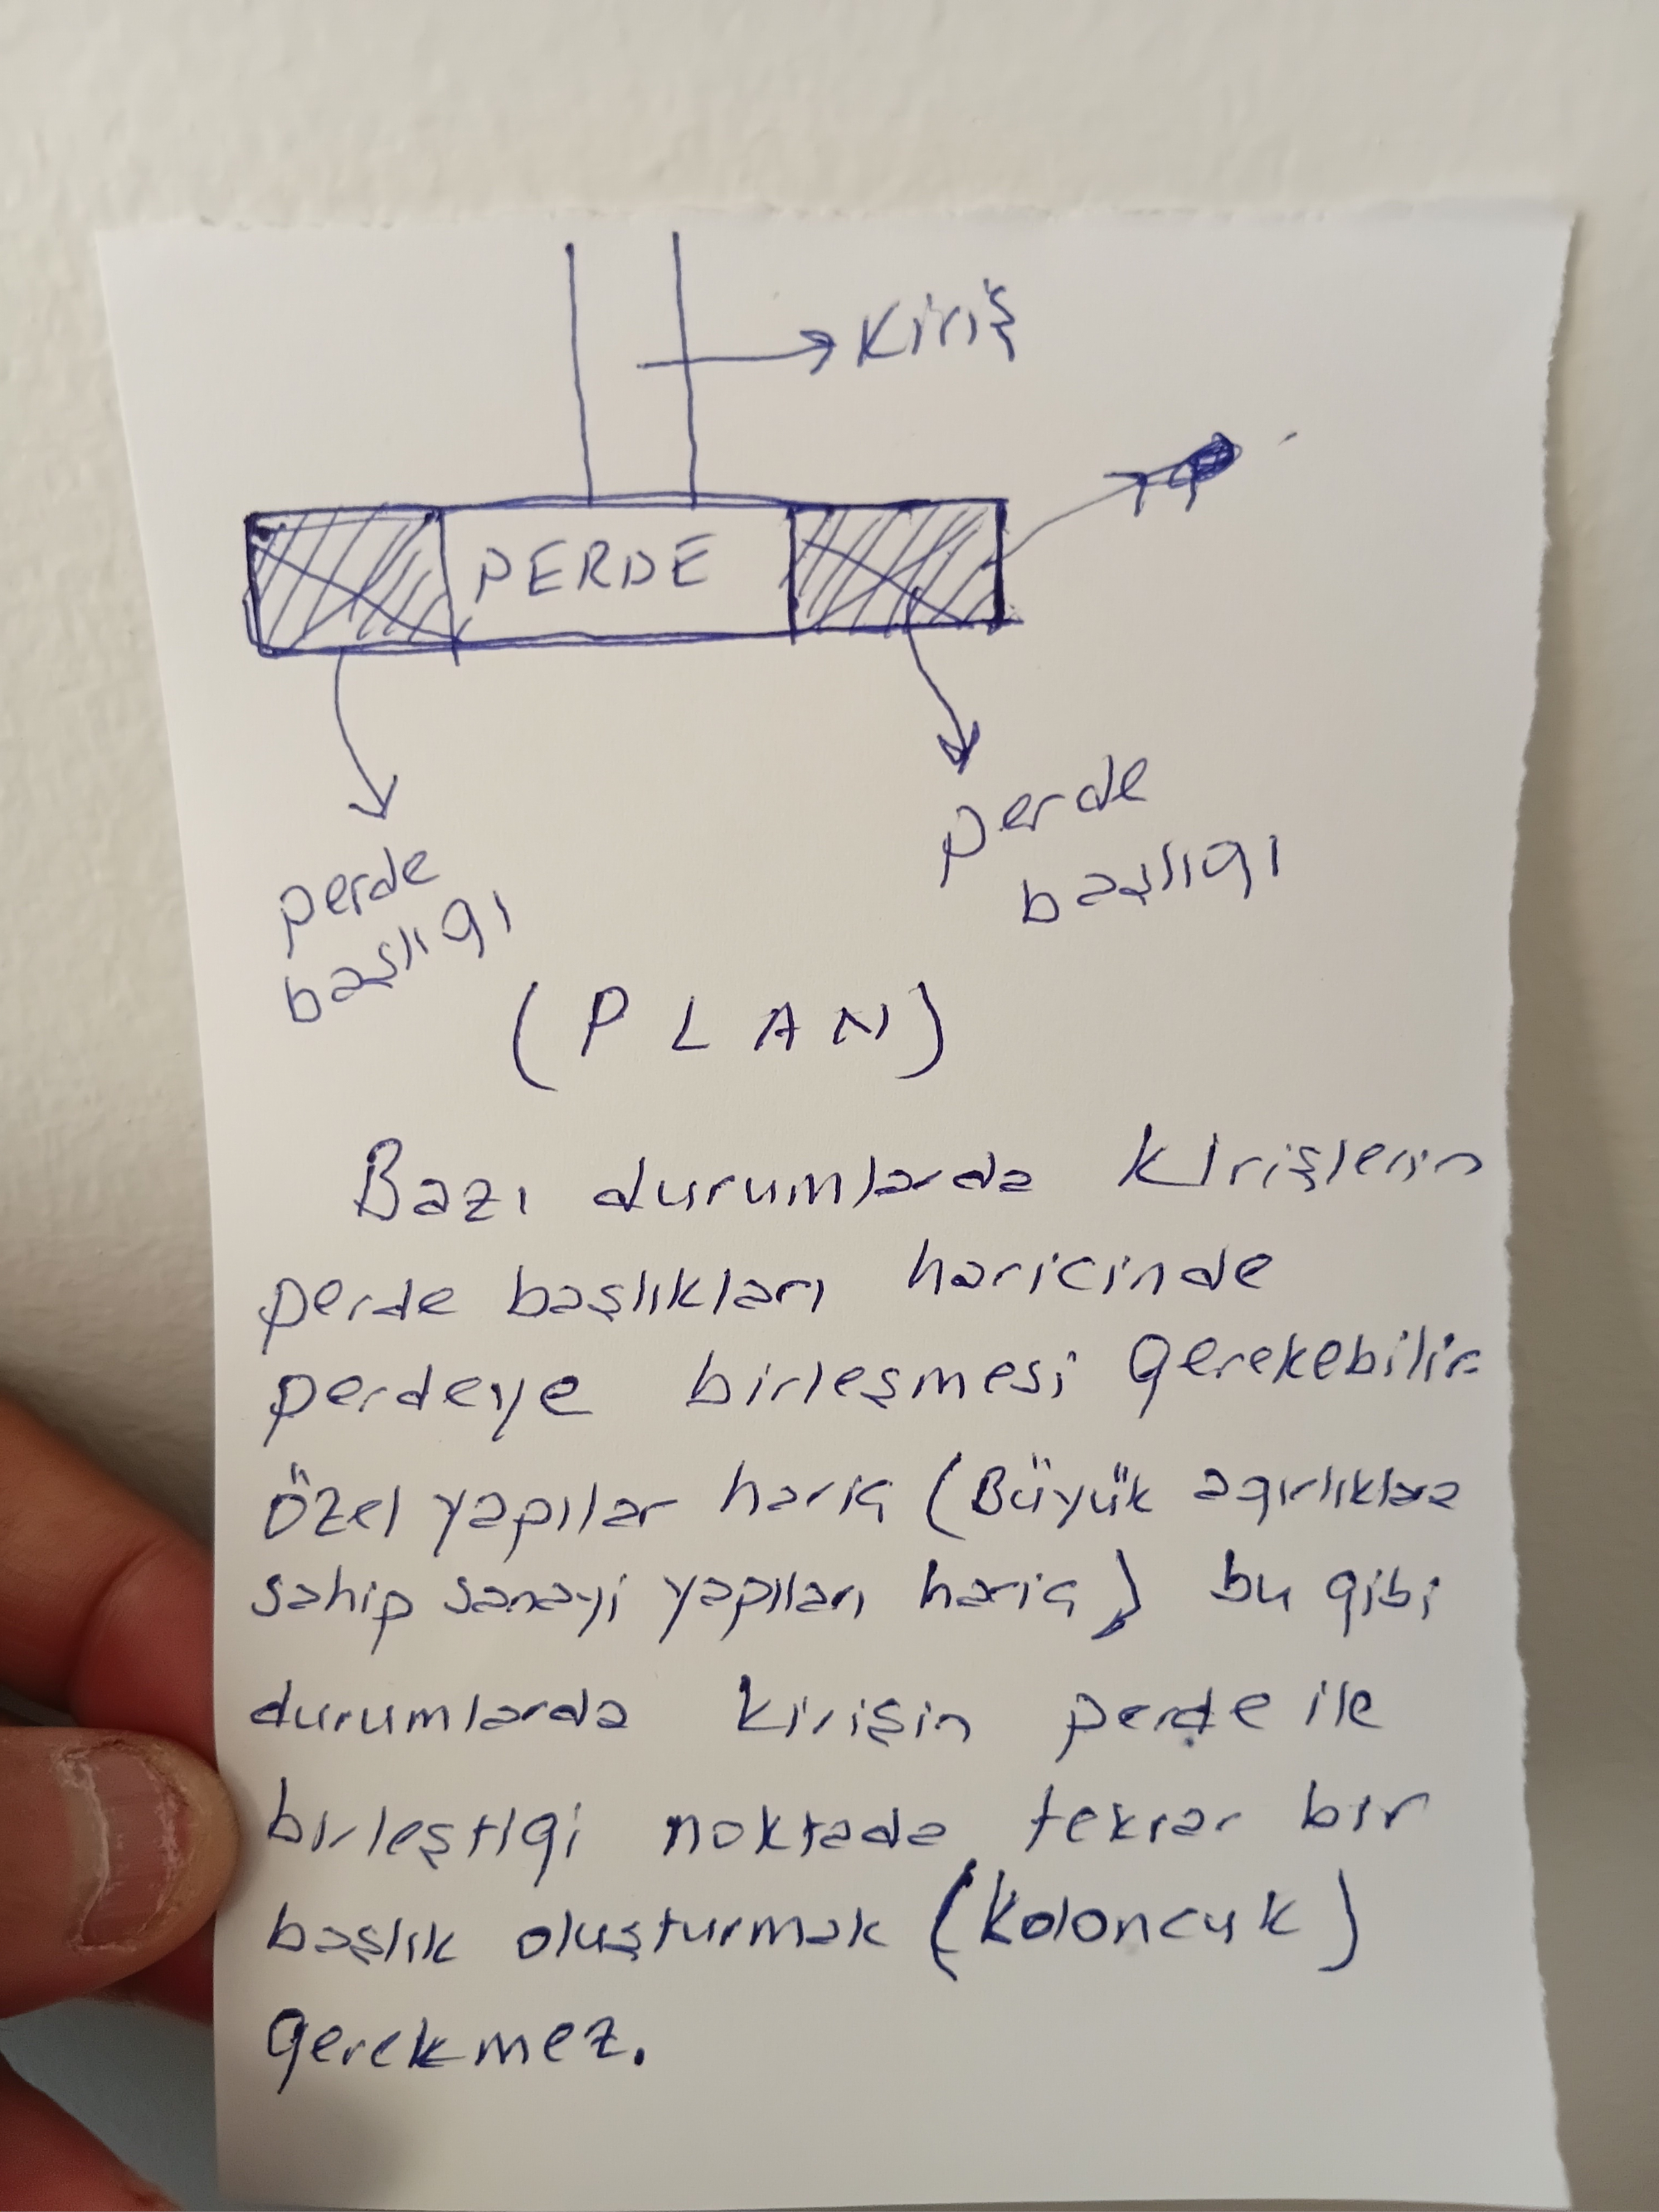 kiriş
PERDE
perde
başlığı
perde
başlığı
(PLAN)
Bazı durumlarda kirişlerin
perde başlıkları haricinde
perdeye birleşmesi gerekebilir
özel yapılar hariç (Büyük ağırlıklara
sahip sanayi yapıları hariç) bu gibi
durumlarda kirişin perde ile
birleştiği noktada tekrar bir
başlık oluşturmak (Koloncuk)
gerekmez.